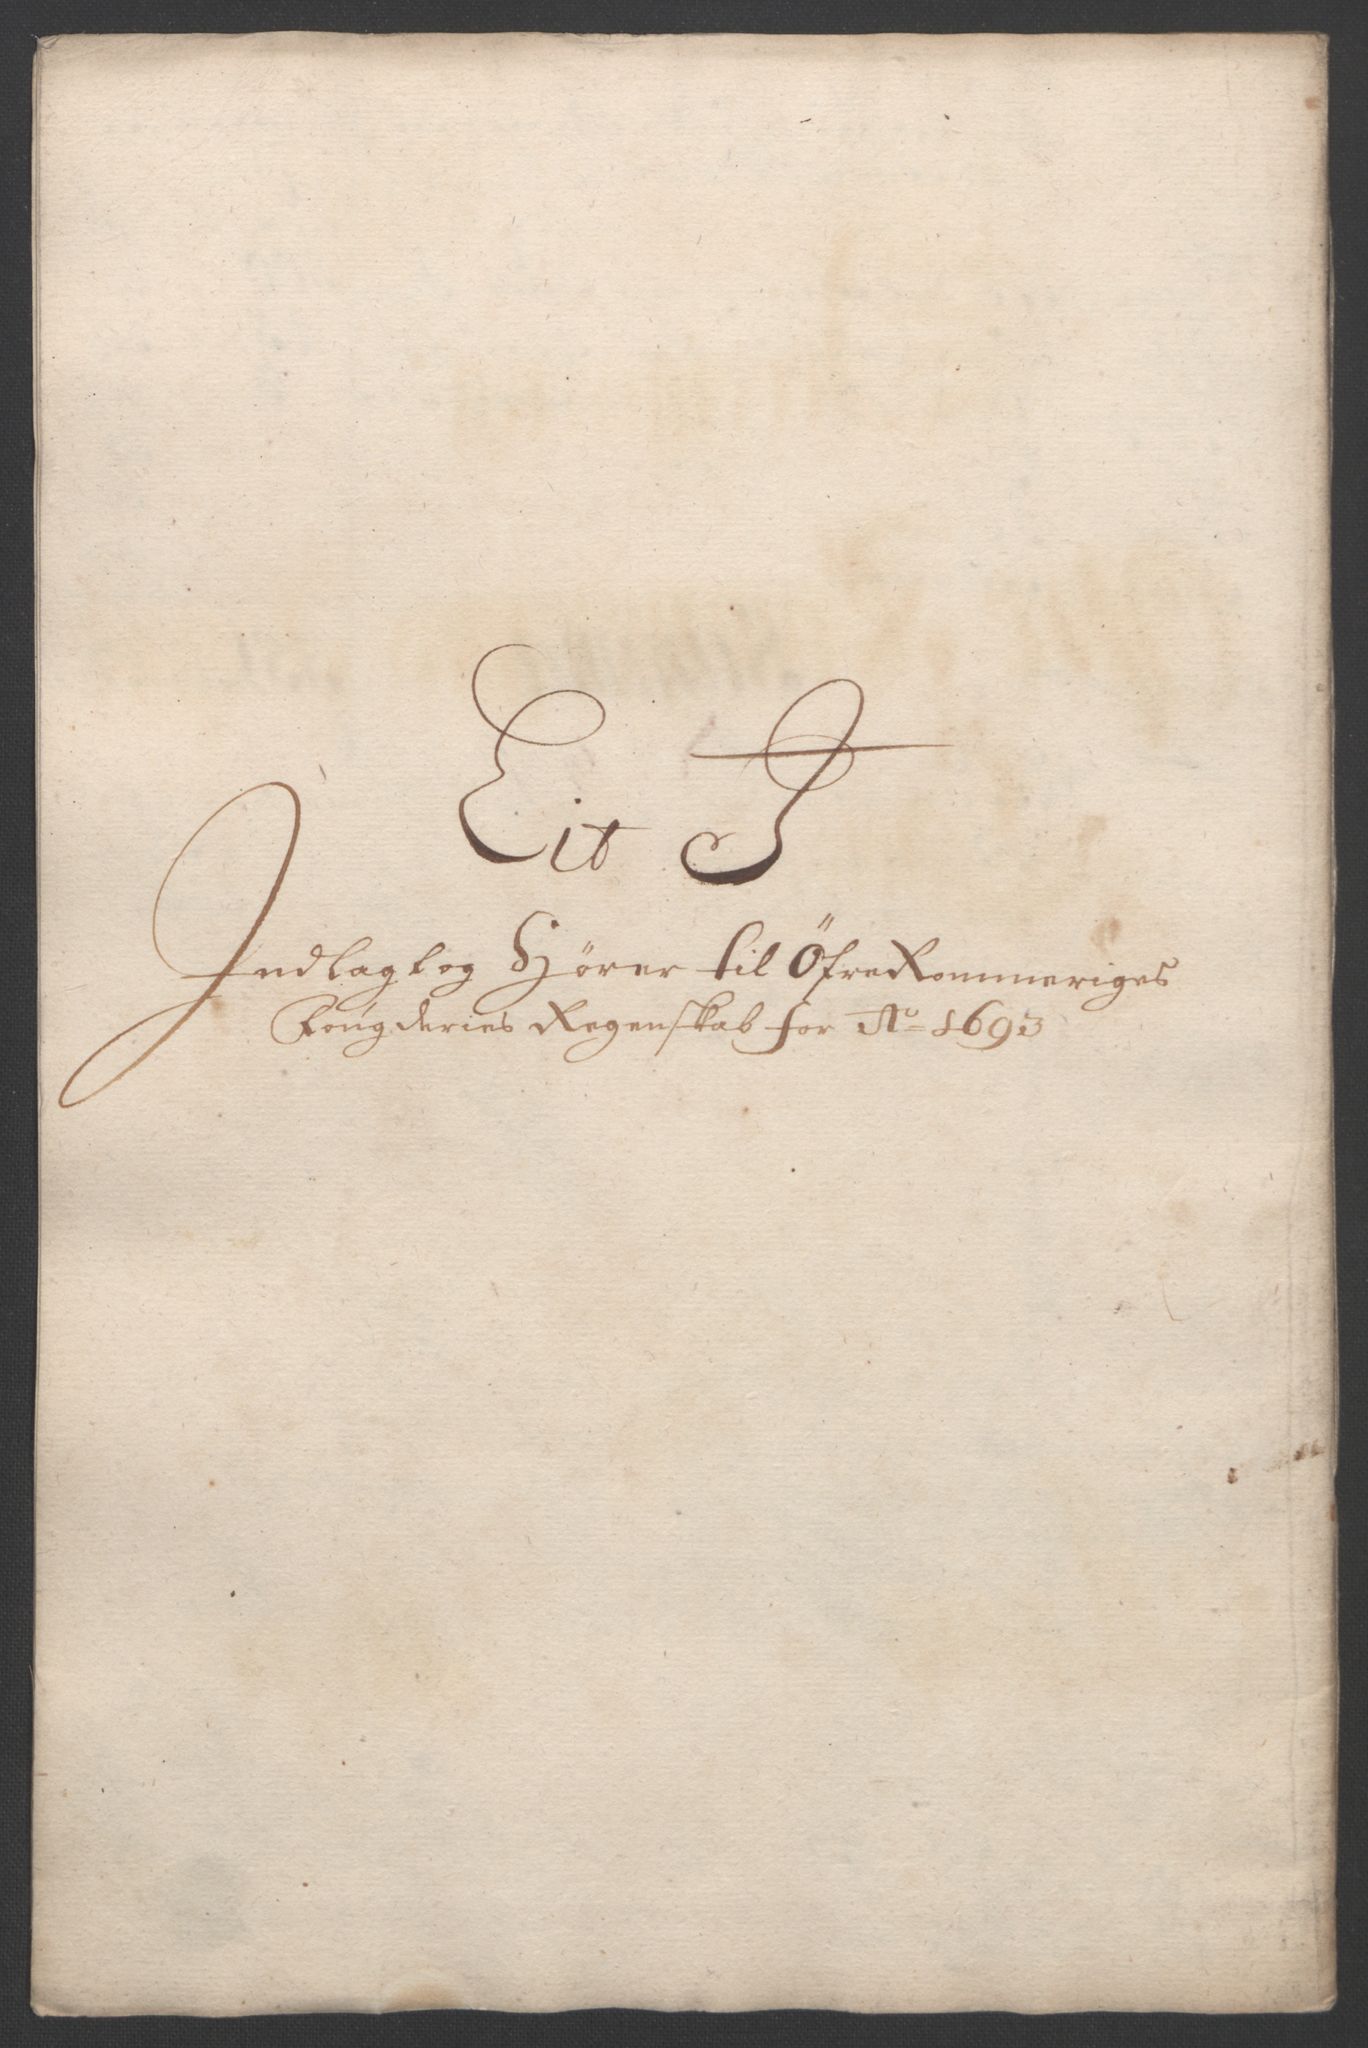 Lit J
Indlagt og Hjörer til Öfre Rommeriges
Fougderies Regenskab for Ao 1693